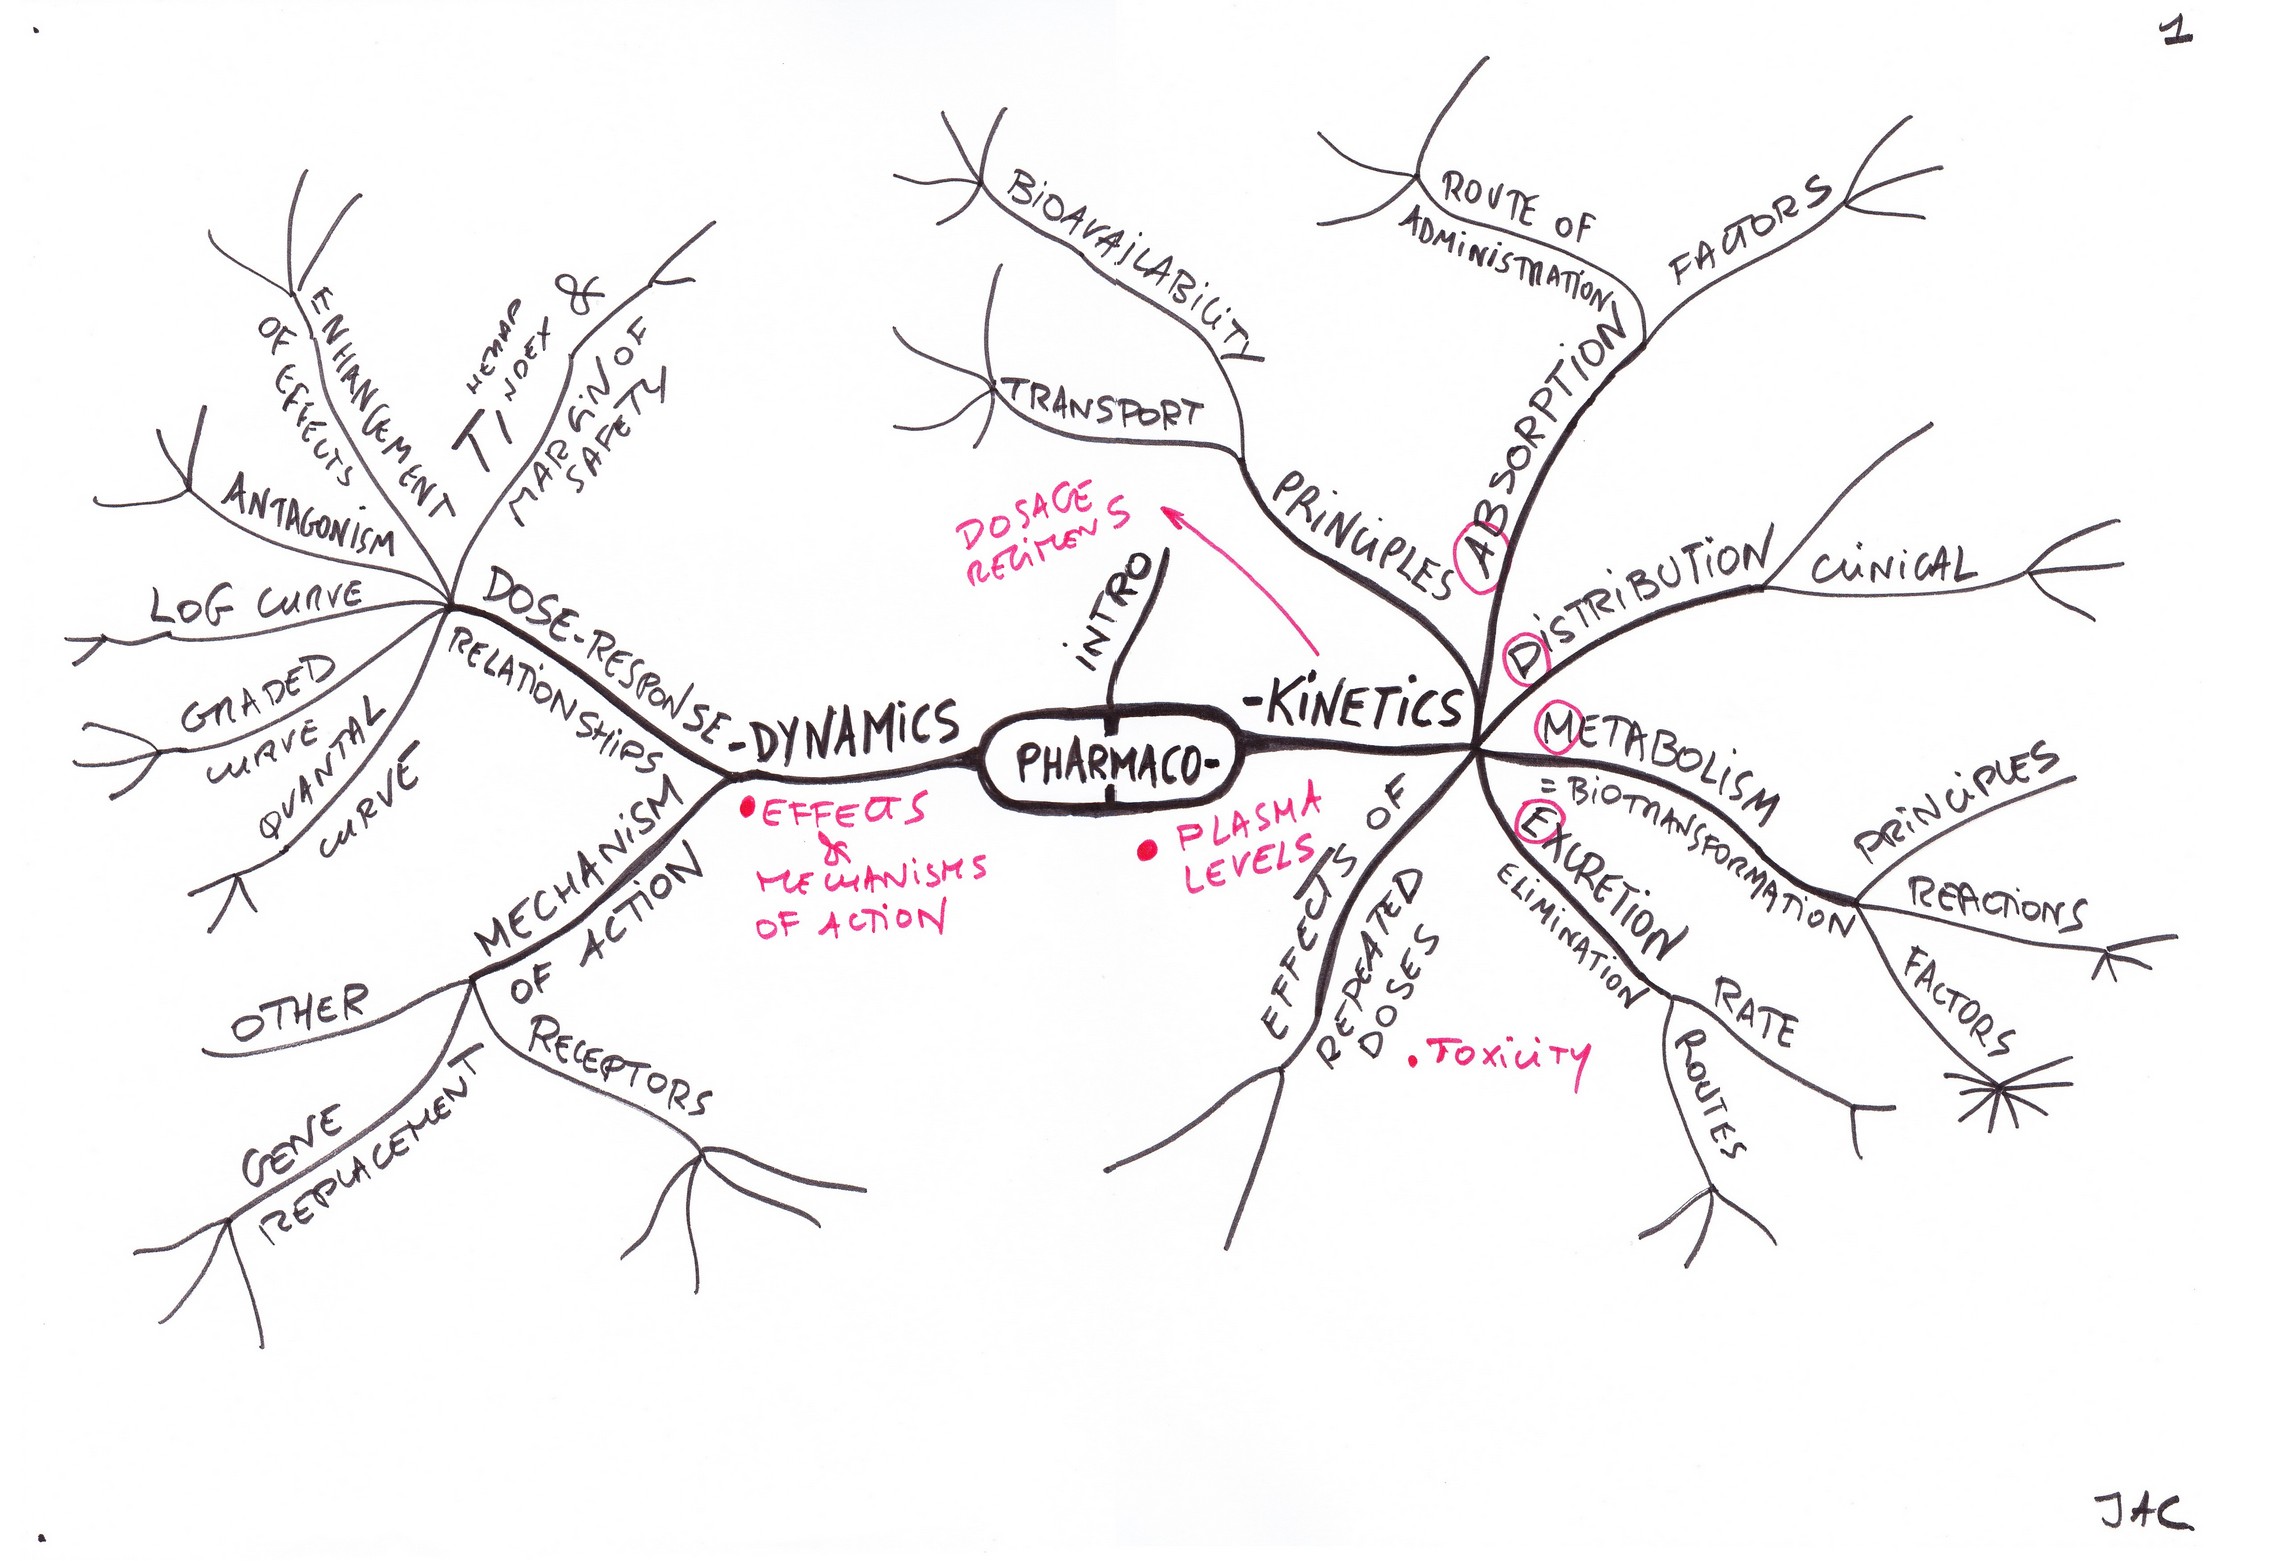 1
BIOAVAILABILITY
TRANSPORT
PRINCIPLES
ROUTE OF
ADMINISTRATION
FACTORS
ABSORPTION
DISTRIBUTION
CLINICAL
METABOLISM
= BIOTRANSFORMATION
PRINCIPLES
REACTIONS
FACTORS
EXCRETION
ELIMINATION
RATE
ROUTES
EFFECTS OF
REPEATED
DOSES
• TOXICITY
-KINETICS
• PLASMA
LEVELS
DOSAGE
REGIMENS
INTRO
PHARMACO-
-DYNAMICS
• EFFECTS
&
MECHANISMS
OF ACTION
DOSE-RESPONSE
RELATIONSHIPS
ENHANCEMENT
OF EFFECTS
TI &
NDEX
MARGIN OF
SAFETY
ANTAGONISM
LOG CURVE
GRADED
CURVE
QUANTAL
CURVE
MECHANISM
OF ACTION
OTHER
GENE
REPLACEMENT
RECEPTORS
JAC